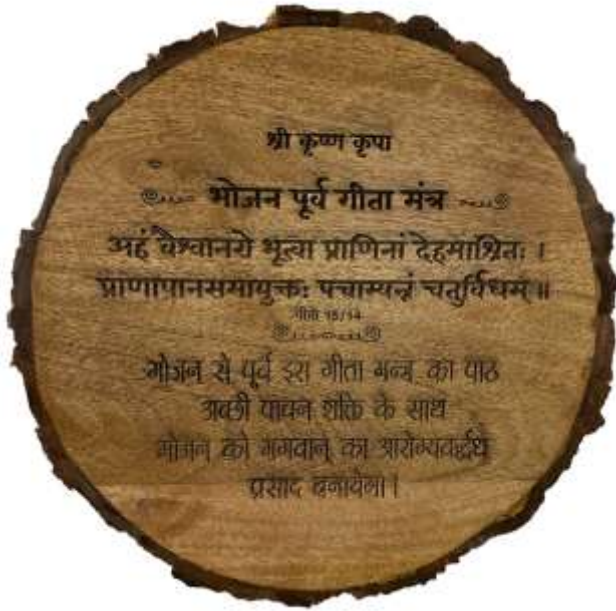 श्री कृष्ण कृपा
भोजन पूर्व गीता मंत्र
अहं वैश्वानरो भूत्वा प्राणिनां देहमाश्रितः ।
प्राणापानसमायुक्तः पचाम्यन्नं चतुर्विधम् ॥
गीता 15/14
भोजन से पूर्व इस गीता मन्त्र का पाठ
अच्छी पाचन शक्ति के साथ
भोजन को भगवान् का आरोग्यवर्द्धध
प्रसाद बनायेगा।